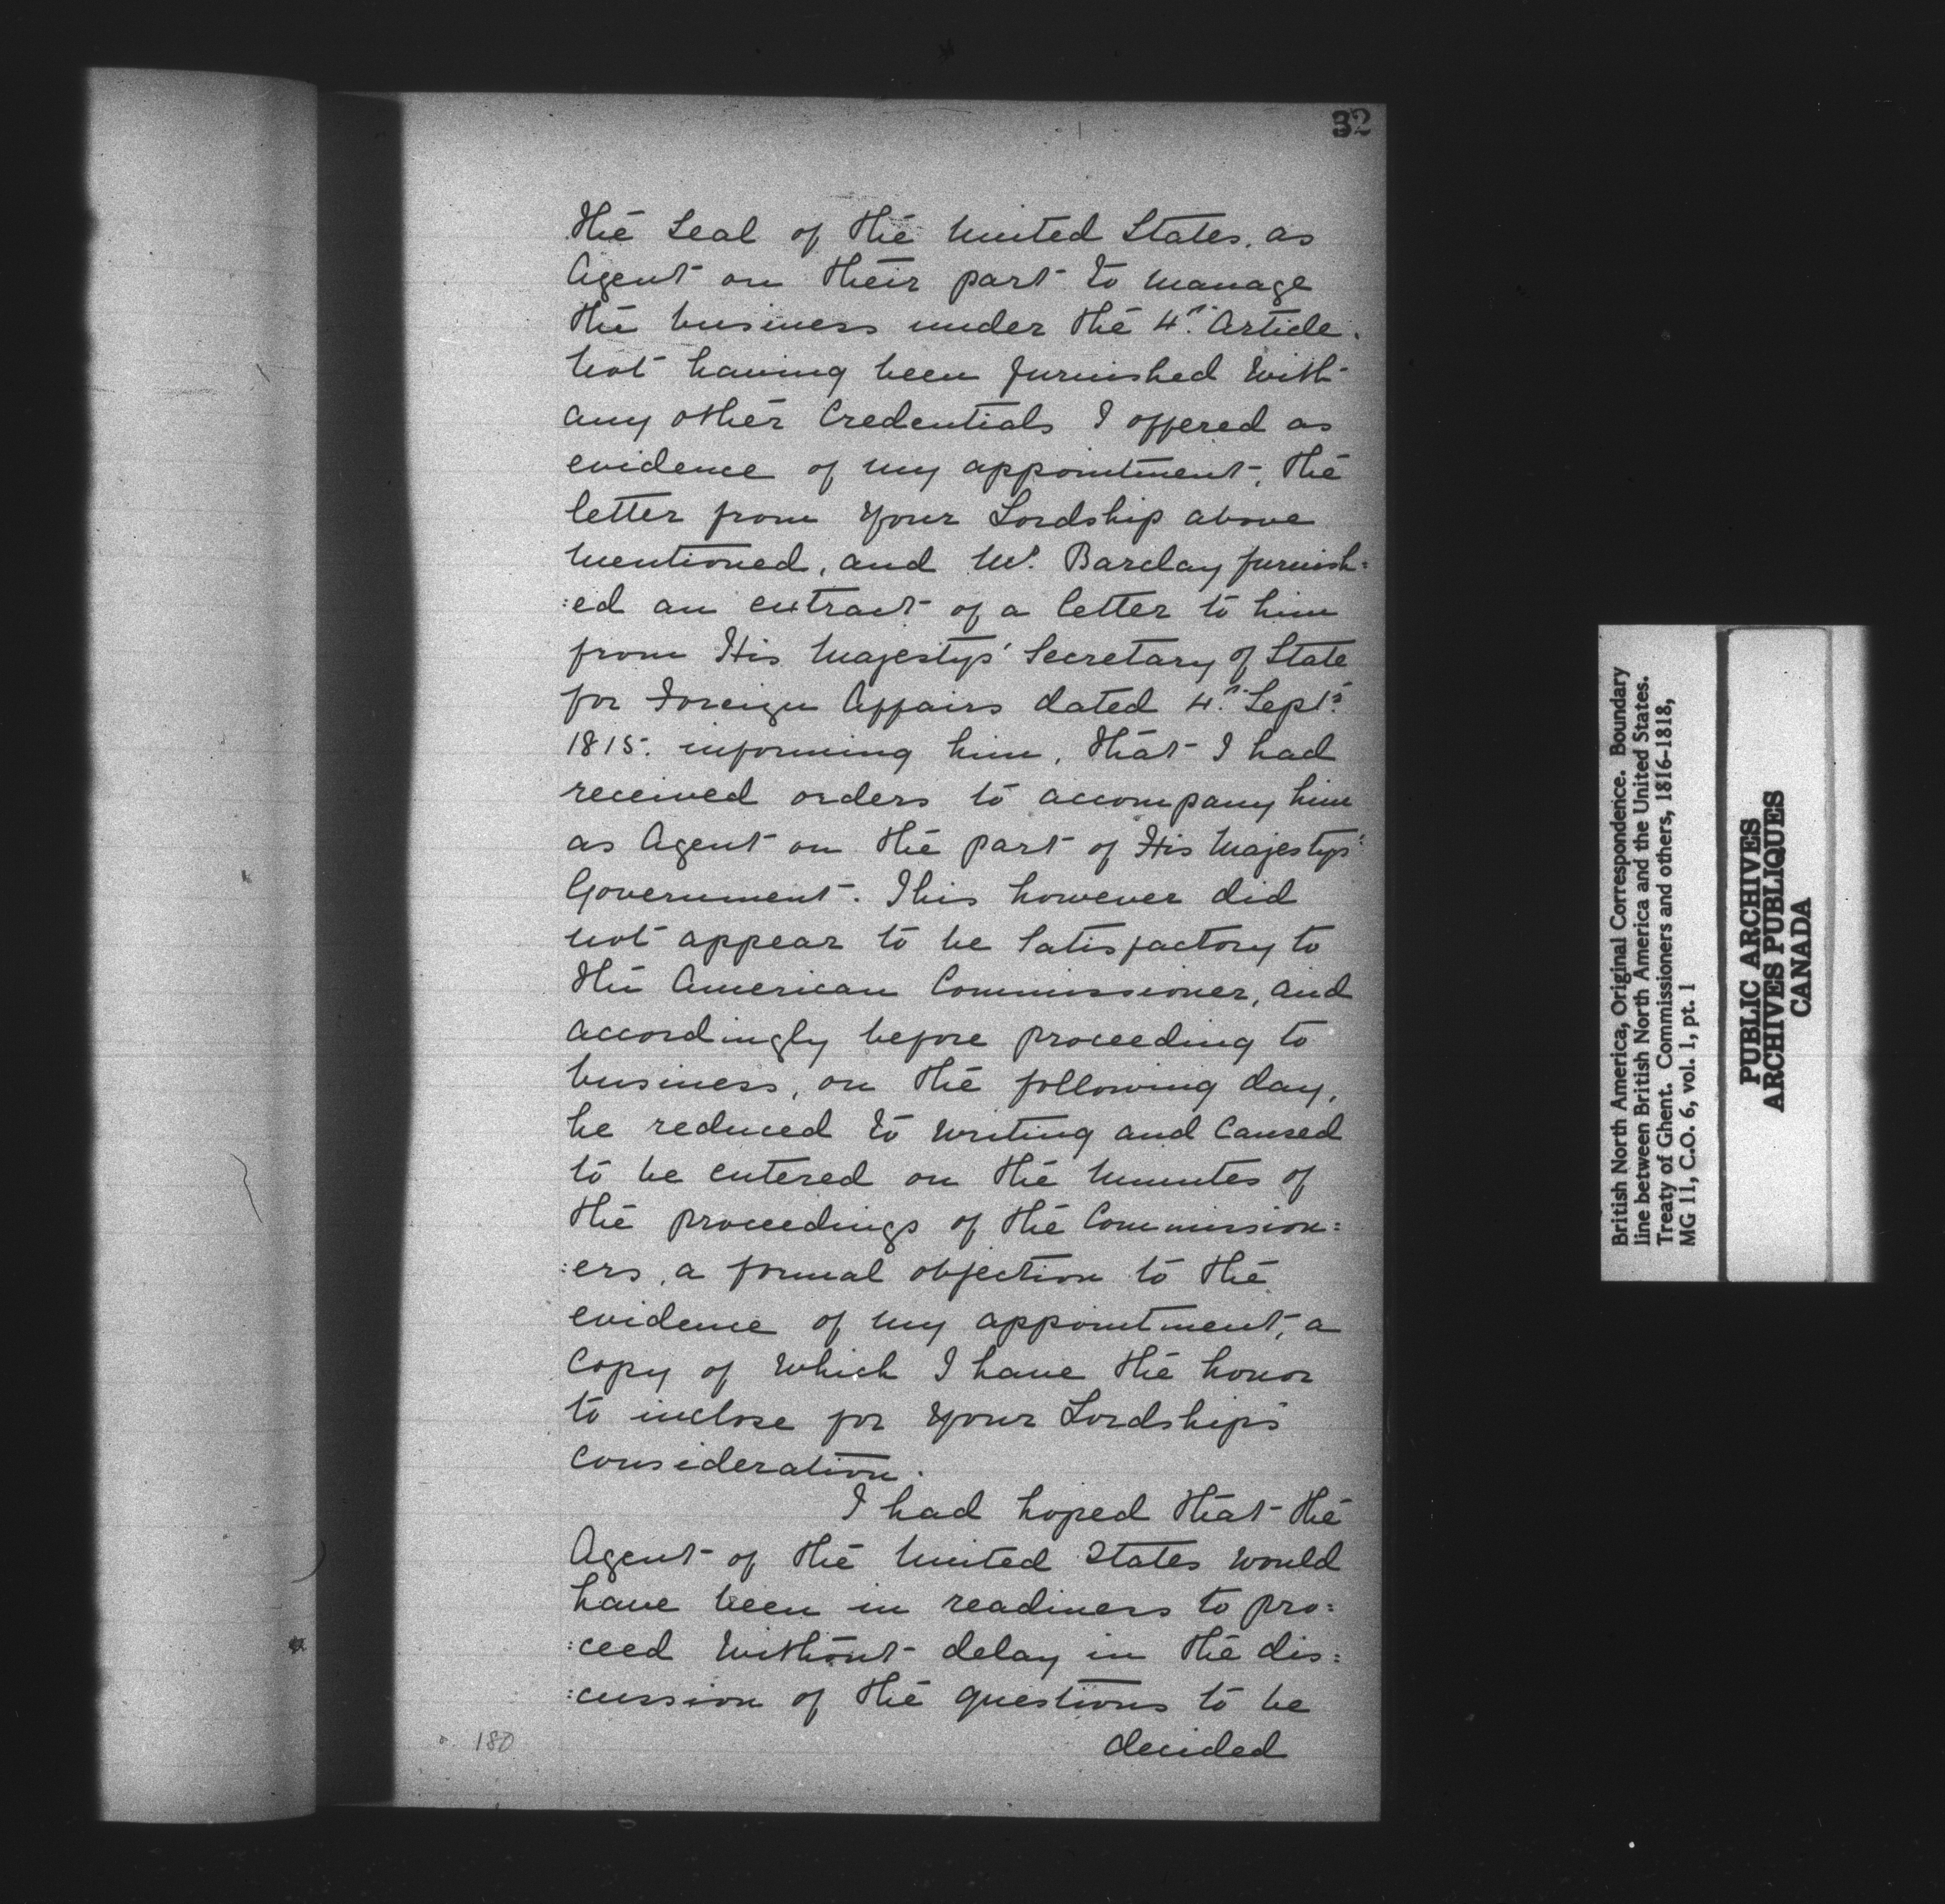 32
the Seal of the United States, as
Agent on their part to manage
the business under the 4th. Article.
Not having been furnished with
any other Credentials I offered as
evidence of my appointment, the
letter from Your Lordship above
mentioned, and Mr. Barclay furnish=
:ed an extract of a letter to him
from His Majestys' Secretary of State
for Foreign Affairs dated 4th. Septr.
1815. informing him, that I had
received orders to accompany him
as Agent on the part of His Majestys'
Government. This however did
not appear to be Satisfactory to
the American Commissioner, and
accordingly before proceeding to
business, on the following day,
he reduced to writing and Caused
to be entered on the Minutes of
the proceedings of the Commission=
:ers, a formal objection to the
evidence of my appointment, a
Copy of which I have the honor
to inclose for Your Lordships
Consideration.
I had hoped that the
Agent of the United States would
have been in readiness to pro=
:ceed without delay in the dis=
:cussion of the questions to be
decided
180
British North America, Original Correspondence. Boundary
line between British North America and the United States.
Treaty of Ghent. Commissioners and others, 1816-1818,
MG 11, C.O. 6, vol. 1, pt. 1
PUBLIC ARCHIVES
ARCHIVES PUBLIQUES
CANADA